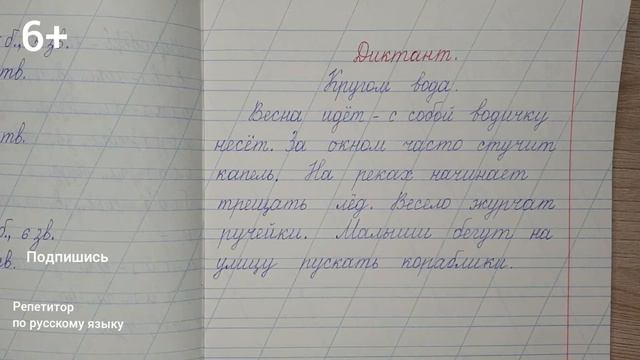 6+
б., 6 зв.
тв.
тв.
б., 6 зв.
в.
Диктант.
Кругом вода.
Весна идёт - с собой водичку
несёт. За окном часто стучит
капель. На реках начинает
трещать лёд. Весело журчат
ручейки. Малыши бегут на
улицу пускать кораблики.
Подпишись
Репетитор
по русскому языку